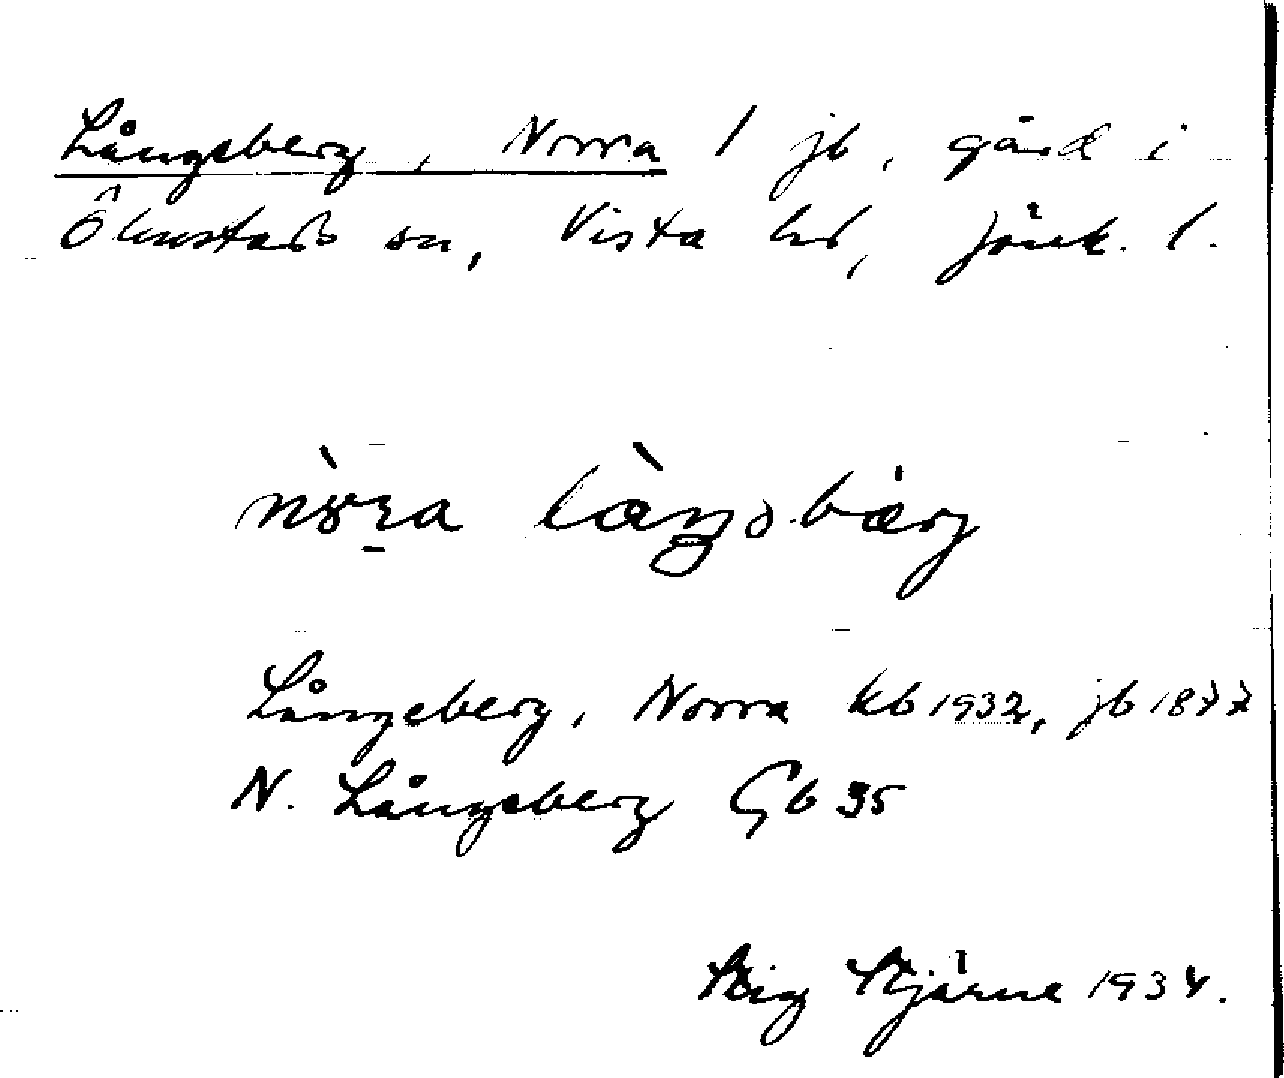 Långeberg, Norra 1 jb, gård i
Ölmstads sn, Vista hd, Jönk. l.
Långeberg, Norra kb 1932, jb 1877
N. Långeberg Gb 35
Stig Stjärne 1934.